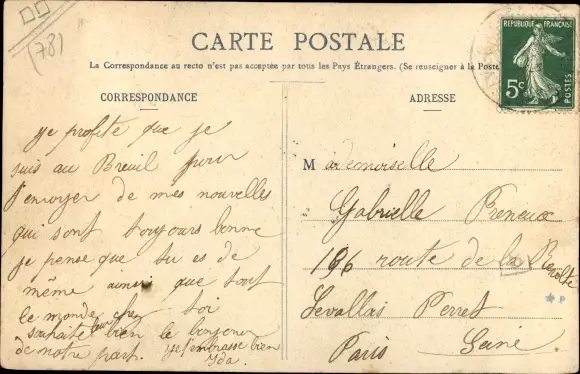 (78)
CARTE POSTALE
La Correspondance au recto n'est pas acceptée par tous les Pays Étrangers. (Se renseigner à la Poste
RÉPUBLIQUE FRANÇAISE
5c
POSTES
CORRESPONDANCE
je profite que je
suis au Breuil pour
t'envoyer de mes nouvelles
qui sont toujours bonne
je pense que tu es de
même ainsi que tout
le monde chez toi
souhaite leur bien le bonjour
de notre part. je t'embrasse bien
Ida.
ADRESSE
Mademoiselle
Gabrielle Preneux
196 route de la Revolte
Levallas Perret
Paris Seine